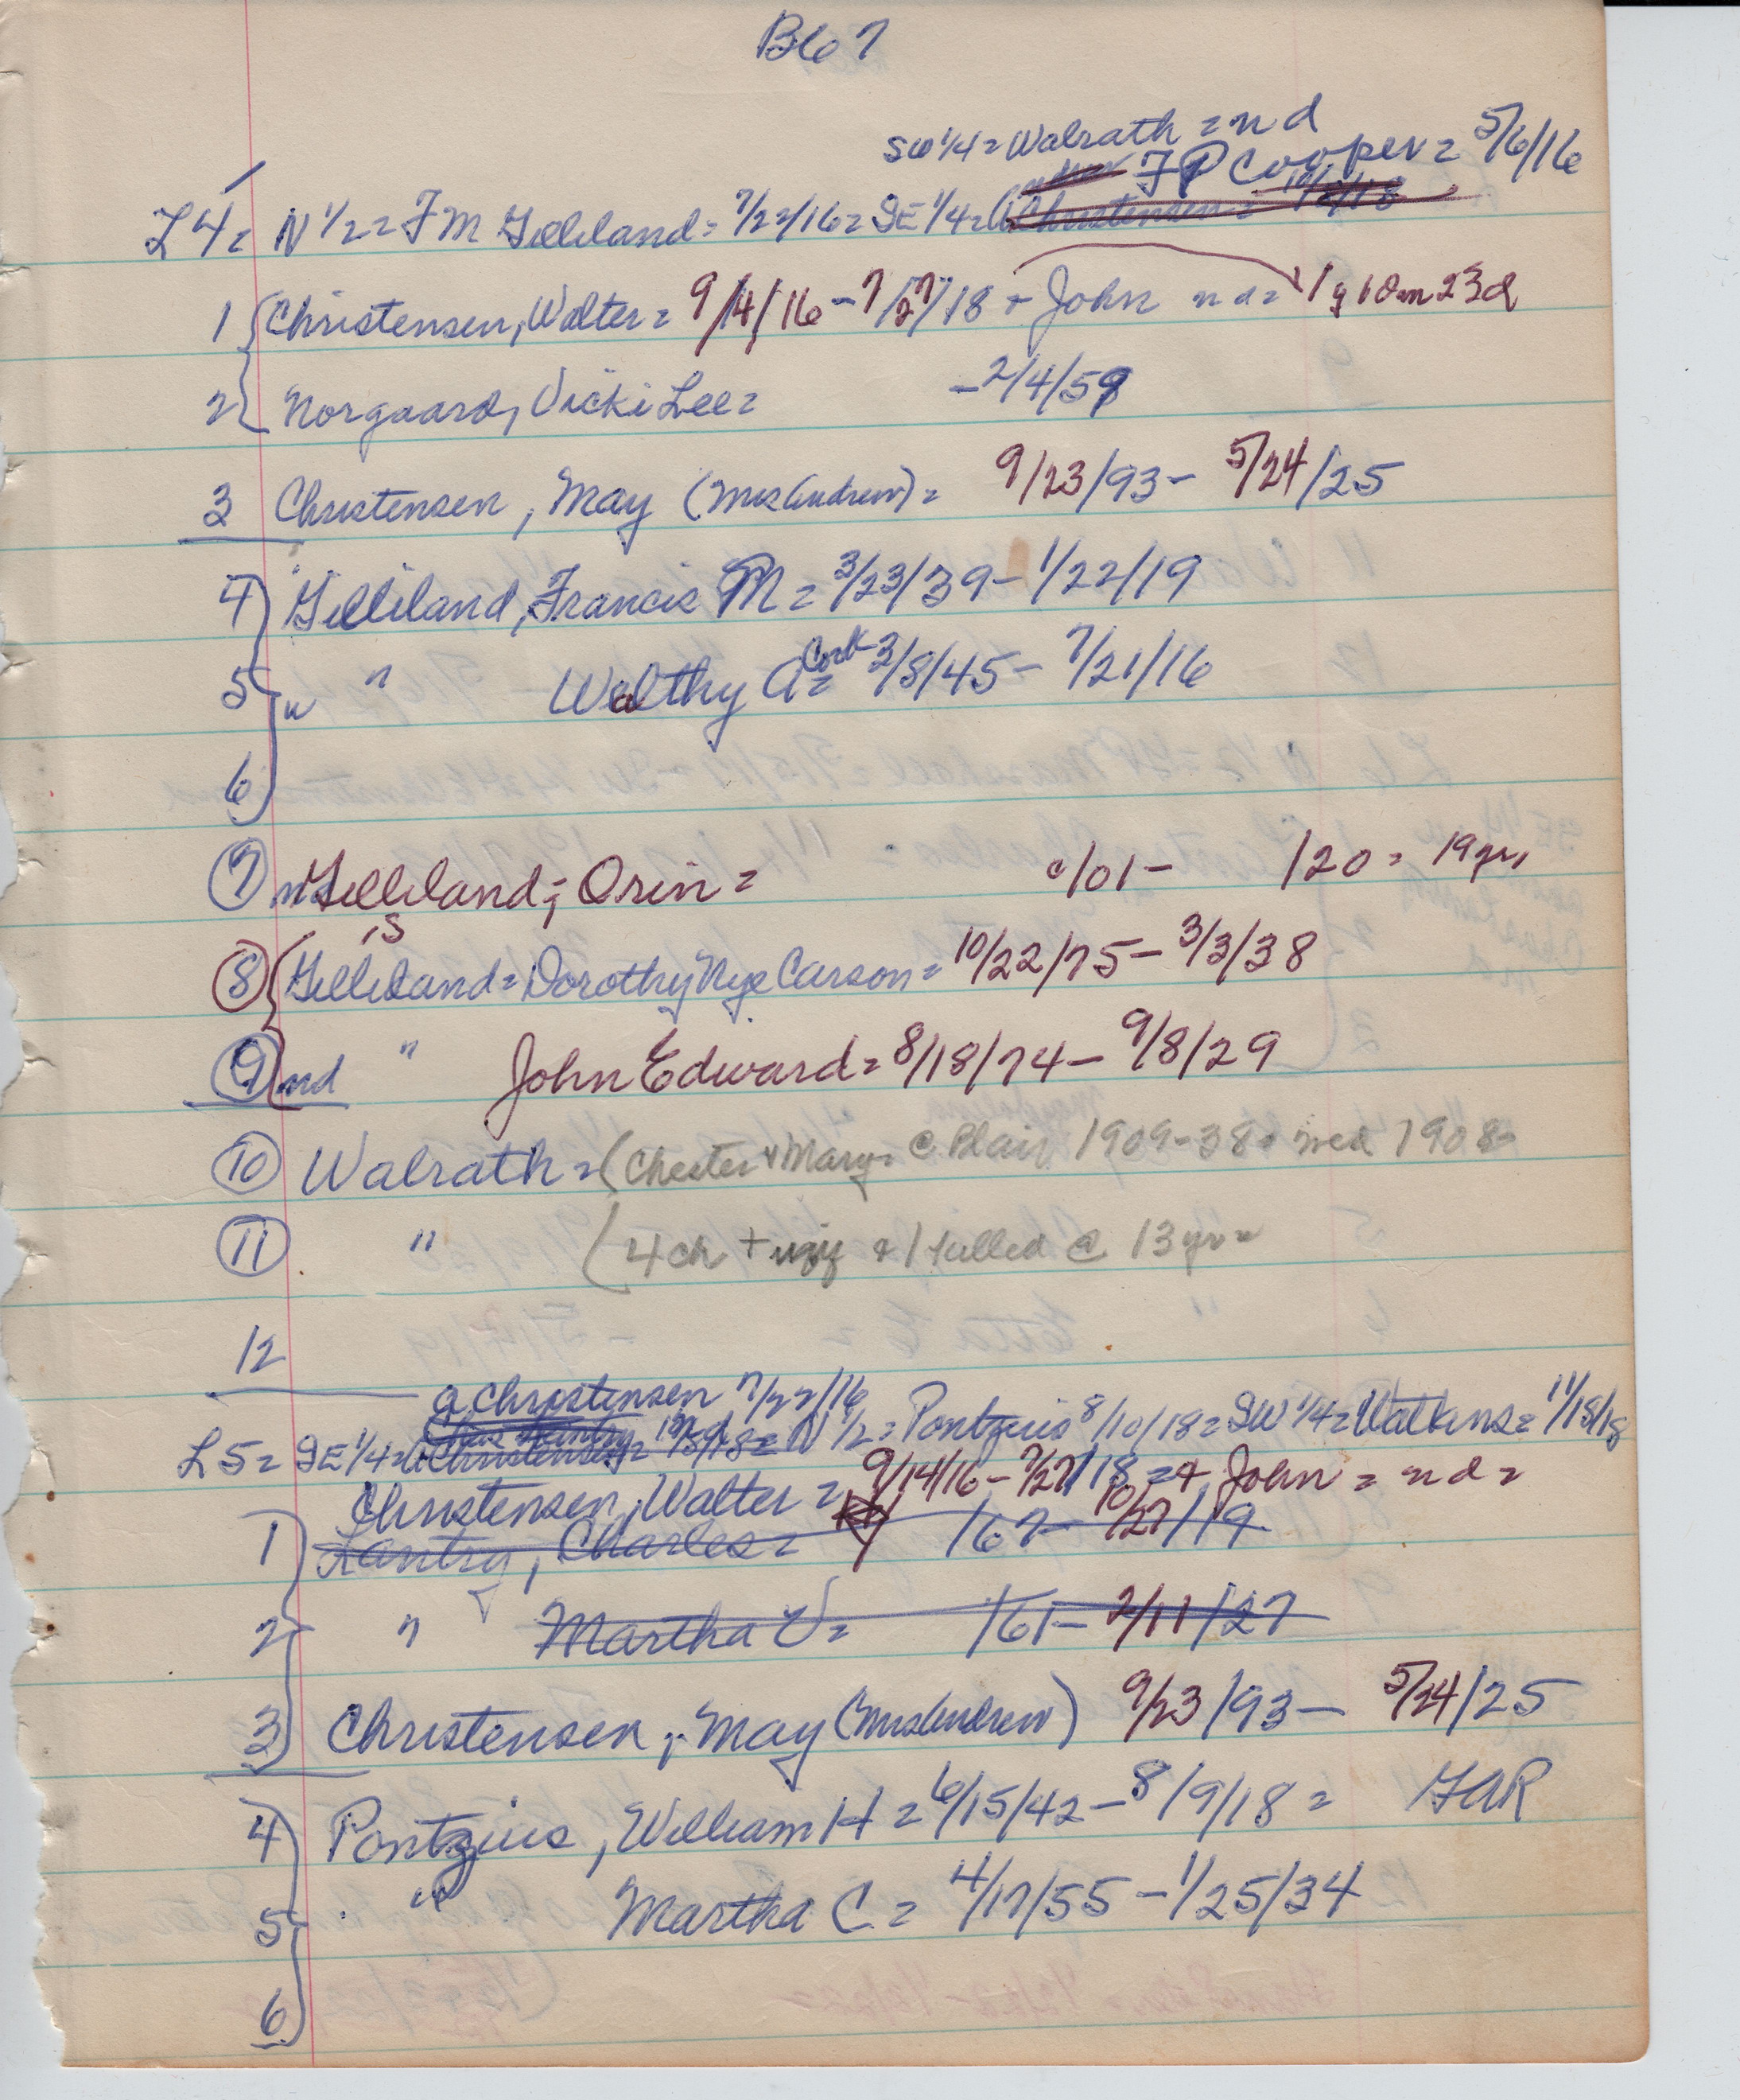 Bl 67
SW 1/4 = Walrath = nd
F P Cooper = 5/6/16
L4 = N 1/2 = F M Gilliland = 7/22/16 = SE 1/4 = A Christensen = 10/8/18
1 Christensen, Walter = 9/14/16 - 7/27/18 + John nd = 1y 10m 23d
2 Norgaard, Vicki Lee = - 2/4/59
3 Christensen, May (Mrs Andrew) = 9/23/93 - 5/24/25
4 Gilliland, Francis M = 3/23/39 - 1/22/19
Cork
5 " " Wealthy A = 3/8/45 - 7/21/16
6
7 ns Gilliland, Orin = c/01 - /20 = 19 yrs
, S
8 Gilliland = Dorothy Nye Carson = 10/22/75 - 3/3/38
9 nd " John Edward = 8/18/74 - 9/8/29
10 Walrath = (Chester + Mary = @ Blair 1909-38 = med 1908 =
11 " (4 ch + + 1 killed @ 13 yr =
12
A Christensen 7/22/16
Chas Lantry nd
L5 = SE 1/4 = A Christensen = 10/8/18 = N 1/2 = Pontzius 8/10/18 = SW 1/4 = Watkins = 11/18/18
Christensen, Walter = 9/14/16 - 7/27/18 = + John = nd =
1 Lantry, Charles = /67 - 10/27/19
2 " Martha V = /61 - 2/11/27
3 Christensen, May (Mrs Andrew) 9/23/93 - 5/24/25
4 Pontzius, William H = 6/15/42 - 8/9/18 = GAR
5 " Martha C = 4/17/55 - 1/25/34
6